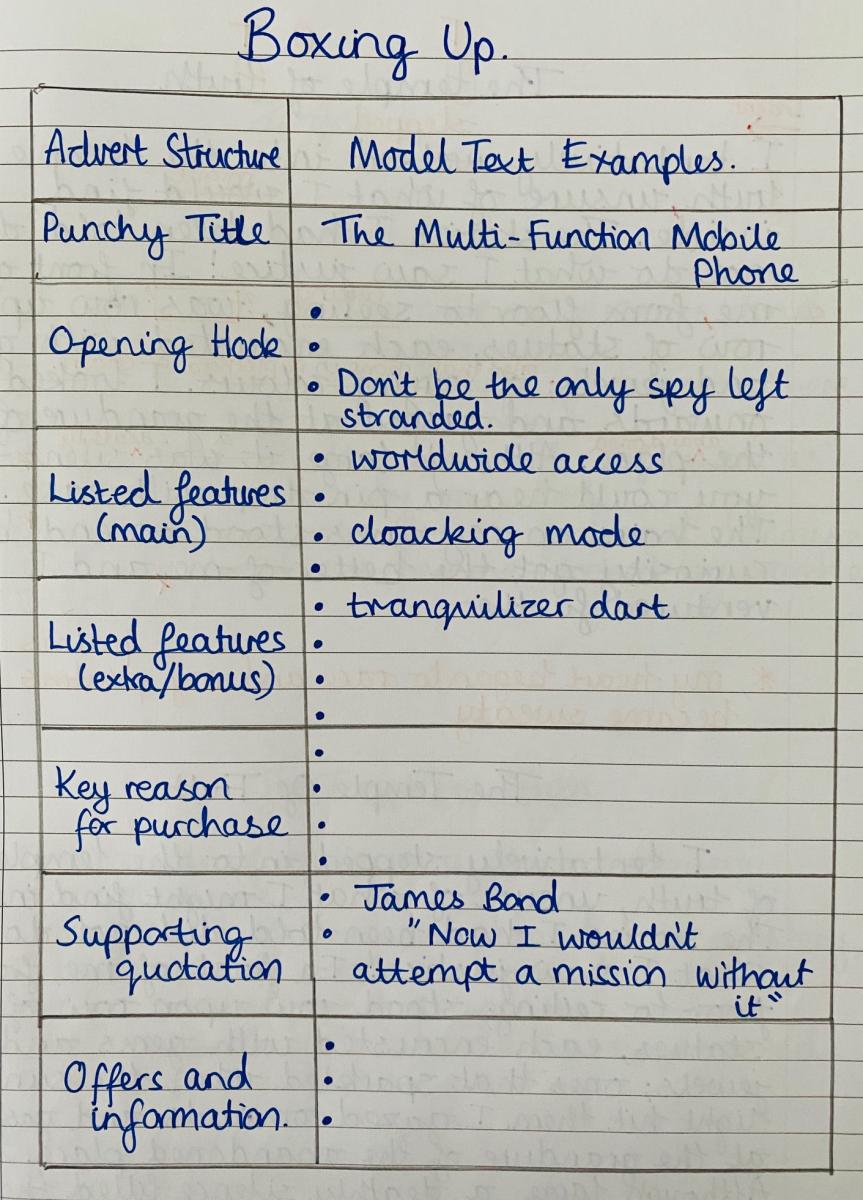 Boxing Up.
Advert Structure
Model Text Examples.
Punchy Title
The Multi-Function Mobile
Phone
Opening Hook
•
•
• Don't be the only spy left
stranded.
Listed features
(main)
• worldwide access
•
• cloacking mode
•
Listed features
(extra/bonus)
• tranquilizer dart
•
•
•
Key reason
for purchase
•
•
•
•
Supporting
quotation
• James Bond
• "Now I wouldn't
attempt a mission without
it"
Offers and
information.
•
•
•